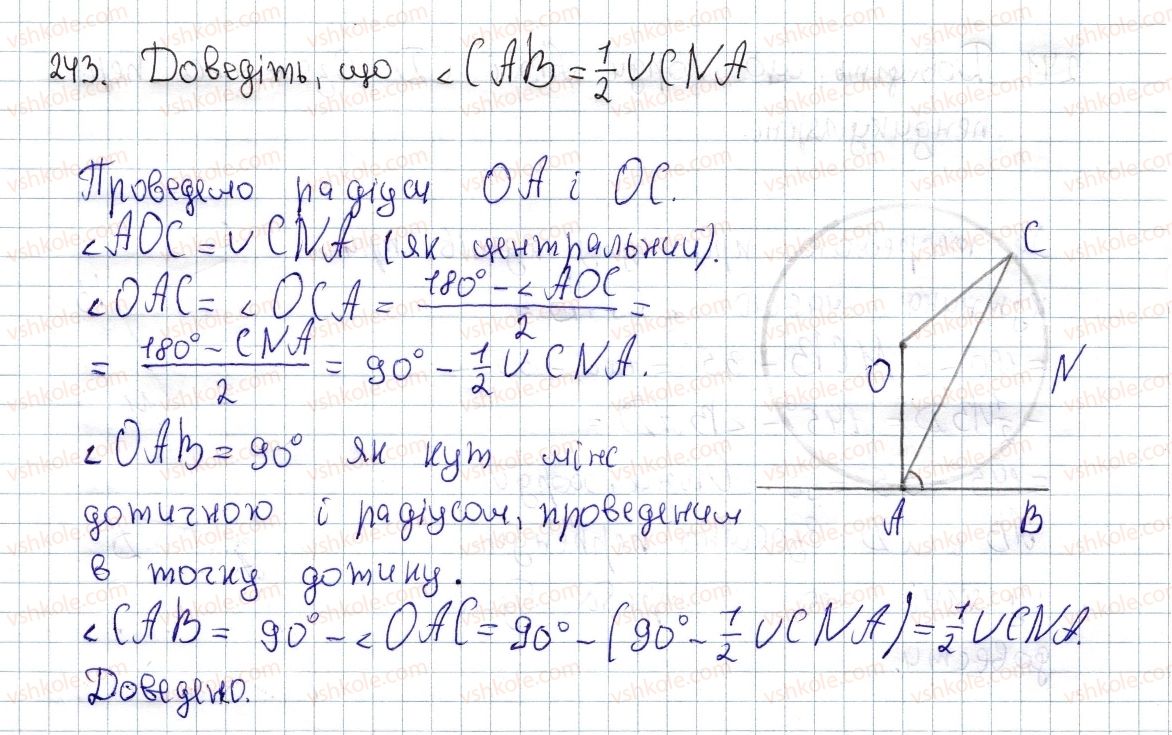 243. Доведіть, що ∠CAB = 1/2 ∪CNA
Проведемо радіуси OA і OC.
∠AOC = ∪CNA (як центральний).
∠OAC = ∠OCA = (180° - ∠AOC)/2 =
= (180° - CNA)/2 = 90° - 1/2 ∪CNA.
∠OAB = 90° як кут між
дотичною і радіусом, проведеним
в точку дотику.
∠CAB = 90° - ∠OAC = 90° - (90° - 1/2 ∪CNA) = 1/2 ∪CNA.
Доведено.
C
O
N
A
B
vshkole.com